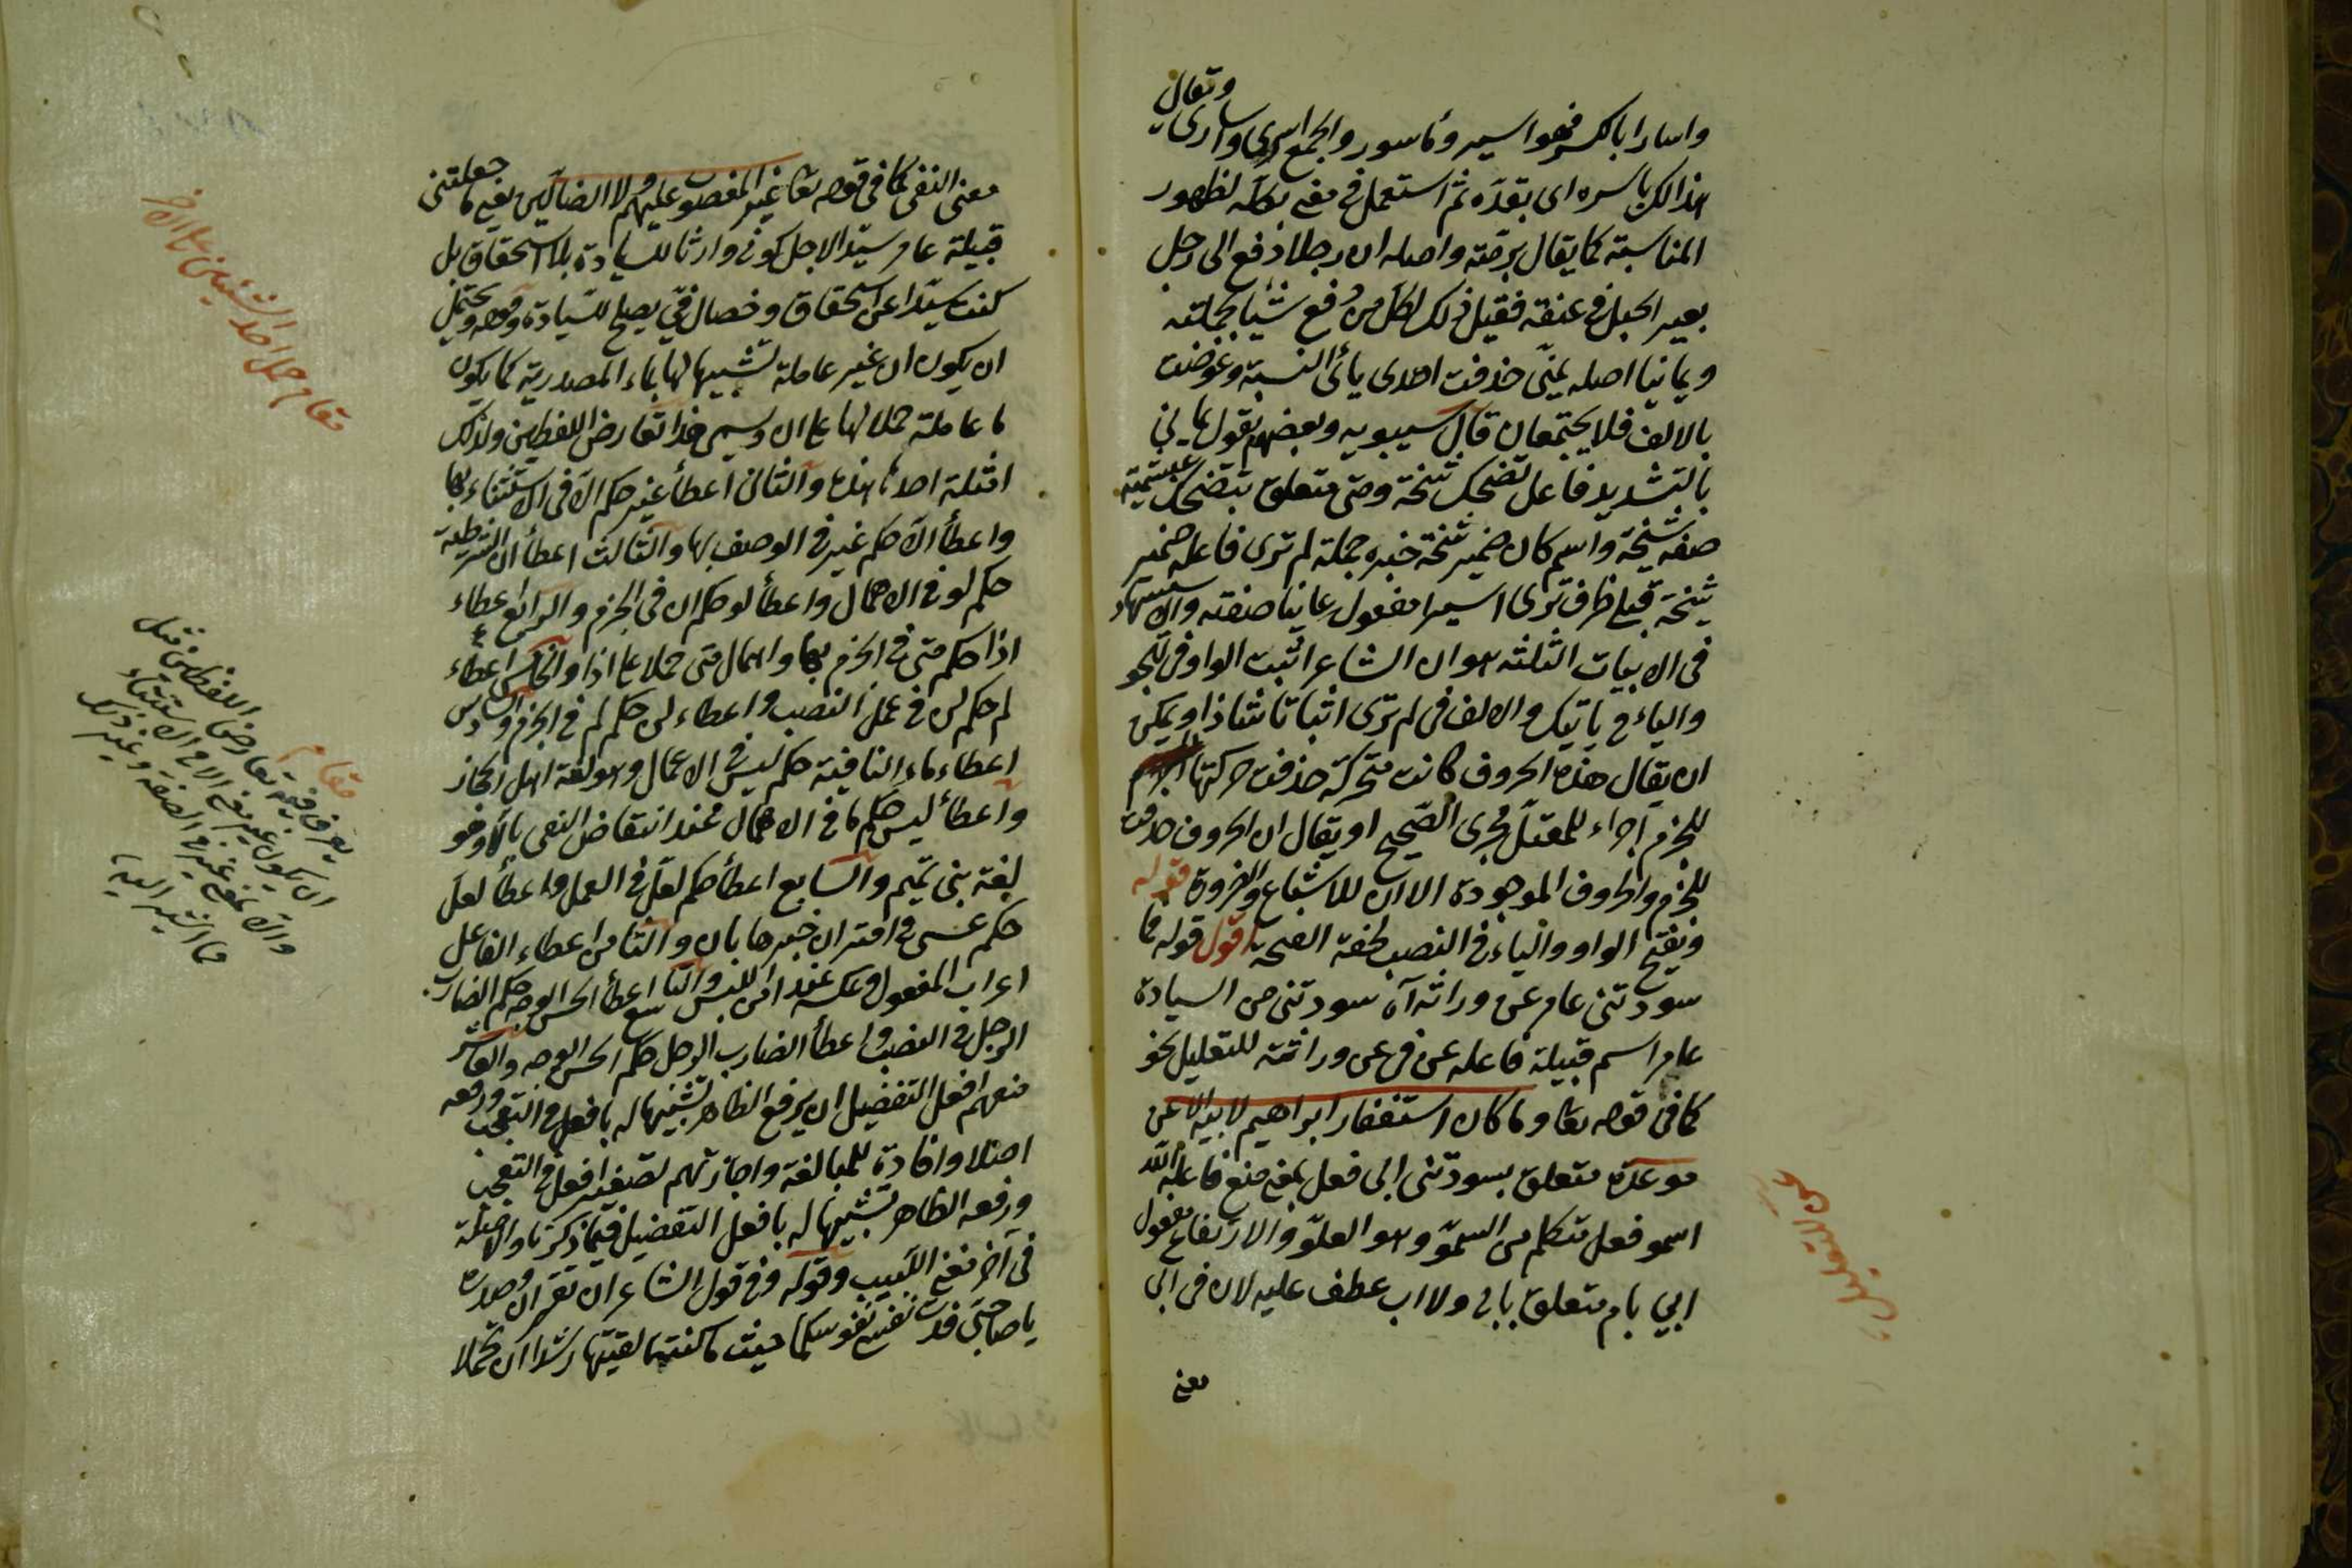 واسارا بالكسر فهو اسير ومأسور والجمع اسرى واسارى وتقال
هذا لك باسره اى بقدّه ثم استعمل فى معنى بكله لظهور
المناسبة كما يقال برمّته واصله ان رجلا دفع الى رجل
بعير الحبل فى عنقه فقيل ذلك لكل من دفع شيئا بجملته
ويمانيا اصله يمنىّ حذفت احدى يائى النسبة وعوضت
بالالف فلا يجتمعان قال سيبويه وبعضهم يقول يمانىّ
بالتشديد فاعل تضحك شيخة ومتى متعلق بتضحك عبشمية
صفة شيخة واسم كان ضمير شيخة خبره جملة لم ترى فاعله ضمير
شيخة قبلى ظرف ترى اسيرا مفعول يمانيا صفته والاستشهاد
فى الابيات الثلثة هو ان الشاعر اثبت الواو فى تهجو
والياء فى ياتيك والالف فى لم ترى اثباتا شاذا ويمكن
ان يقال هذه الحروف كانت متحركة حذفت حركتها
للجزم اجراء للمعتل مجرى الصحيح او يقال ان الحروف حذفت
للجزم والحروف الموجودة الاان للاشباع والضرورة قوله
وتفتح الواو والياء فى النصب لخفة الفتحة اقول قوله فما
سودتنى عامر عن وراثة آه سودتنى من السيادة
عامر اسم قبيلة فاعله عن فى عن وراثة للتعليل نحو
كما فى قوله تعا وما كان استغفار ابراهيم لابيه الا عن
موعدة متعلق بسودتنى ابى فعل بمعنى منع فاعله الله
اسمو فعل متكلم من السموّ وهو العلوّ والارتفاع مفعول
ابى بام متعلق بابى ولا اب عطف عليه لان فى ابى
معنى
عن للتعليل
معنى النفى كما فى قوله تعا غير المغضوب عليهم ولا الضالين يعنى ما جعلتنى
قبيلة عامر سيّدا لاجل كونى وارثا للسيادة بلا استحقاق بل
كنت سيّدا عن استحقاق وخصال فىّ يصلح للسّيادة وقوله ويحتمل
ان يكون ان غير عاملة تشبيها لها بماء المصدرية كما يكون
ما عاملة حملا لها على ان ويسمى هذا تقارض اللفظين ولذلك
امثلة احدها هذه والثانى اعطاء غير حكم الّا فى الاستثناء بها
واعطاء الّا حكم غير فى الوصف بها والثالث اعطاء ان الشرطية
حكم لو فى الاهمال واعطاء لو حكم ان فى الجزم والرابع اعطاء
اذا حكم متى فى الجزم بها واهمال متى حملا على اذا والخامس اعطاء
لم حكم لن فى عمل النصب واعطاء لن حكم لم فى الجزم والسادس
اعطاء ماء النافية حكم ليس فى الاعمال وهو لغة اهل الحجاز
واعطاء ليس حكم ما فى الاهمال عند انتقاض النفى بالّا وهو
لغة بنى تميم والسابع اعطاء حكم لعل فى العمل واعطاء لعل
حكم عسى فى اقتران خبرها بان والثامن اعطاء الفاعل
اعراب المفعول وعكسه عند امن اللبس والتاسع اعطاء الحسن الوجه حكم الضارب
الرجل فى النصب واعطاء الضارب الرجل حكم الحسن الوجه والعاشر
منعهم افعل التفضيل ان يرفع الظاهر تشبيها له بافعل فى التعجب ورفعه
اصلا وافادة للمبالغة واجازتهم تصغير افعل فى التعجب
ورفعه الظاهر تشبيها له بافعل التفضيل فيما ذكرنا والامثلة
فى آخر مغنى اللبيب وقوله وفى قول الشاعر ان تقرآن وصدره
يا صاحبىّ فدت نفسى نفوسكما حيث ما كنتما لقيتما رشدا ان تحملا
مقام حمل احد الشيئين على الاخر
مقام
يعرف فيه تقارض اللفظين مثل
ان يكون غير بمعنى الا فى الاستثناء
والّا بمعنى غير فى الصفة وغير ذلك